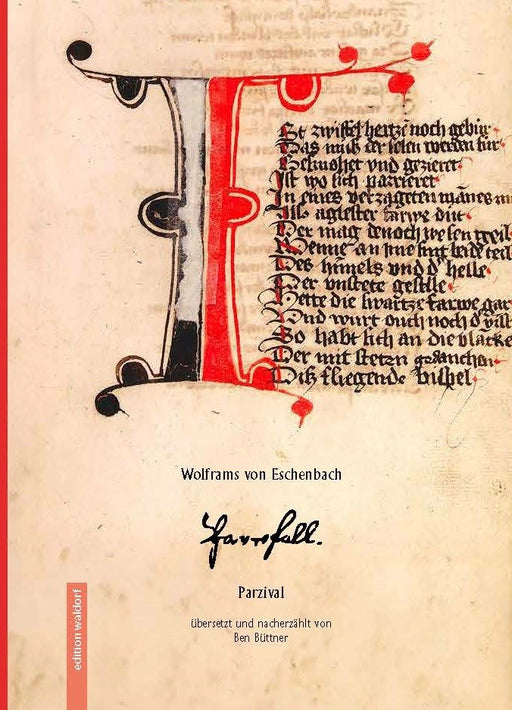 Ist zwiffel hertze noch gebur
Das muß der selen werden sur
Gesmohet vnd gezieret
Ist wo sich parrieret
In eines verzageten mānes
Als aglester farwe dut
Der mag denoch wesen geil
Wenne an jme sint beide teil
Des himels vnd d' helle
Der vnstete geselle
Hette die swartze farwe gar
Vnd wurt ouch noch d'
So habt sich an die blancke
Der mit steten
Diß fliegende bispel
Wolframs von Eschenbach
Parzival
übersetzt und nacherzählt von
Ben Büttner
edition waldorf